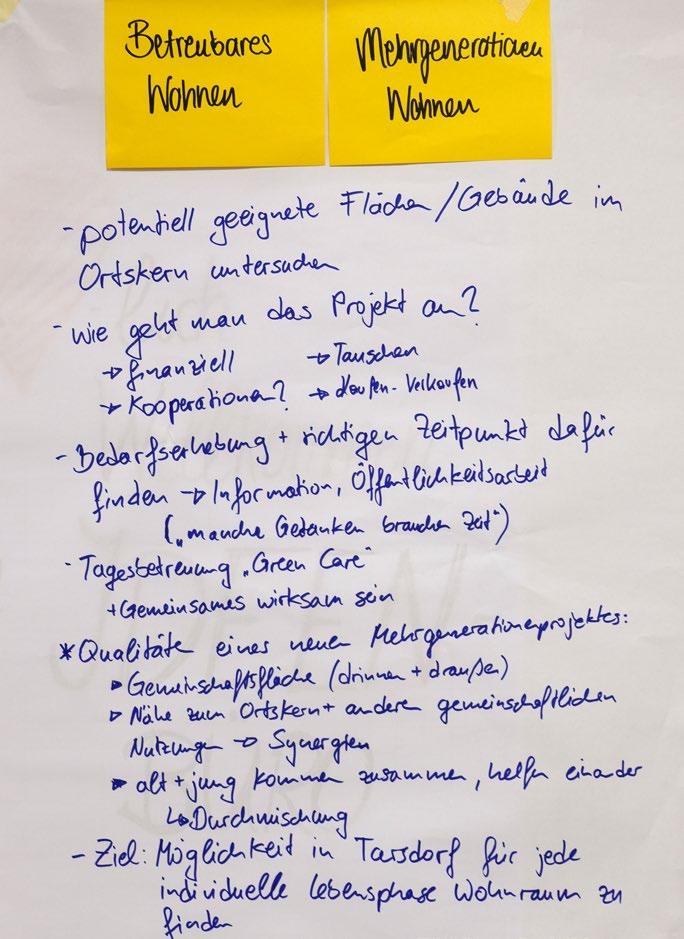 Betreubares
Wohnen
Mehrgenerationen
Wohnen
- potentiell geeignete Flächen/Gebäude im
Ortskern untersuchen
- wie geht man das Projekt an?
→ finanziell → Tauschen
→ Kooperationen? → Kaufen - Verkaufen
- Bedarfserhebung + richtigen Zeitpunkt dafür
finden → Information, Öffentlichkeitsarbeit
(„manche Gedanken brauchen Zeit“)
- Tagesbetreuung „Green Care“
+ Gemeinsames wirksam sein
* Qualitäten eines neuen Mehrgenerationenprojektes:
▷ Gemeinschaftsfläche (drinnen + draußen)
▷ Nähe zum Ortskern + anderen gemeinschaftlichen
Nutzungen → Synergien
▷ alt + jung kommen zusammen, helfen einander
↳ Durchmischung
- Ziel: Möglichkeit in Tarsdorf für jede
individuelle Lebensphase Wohnraum zu
finden